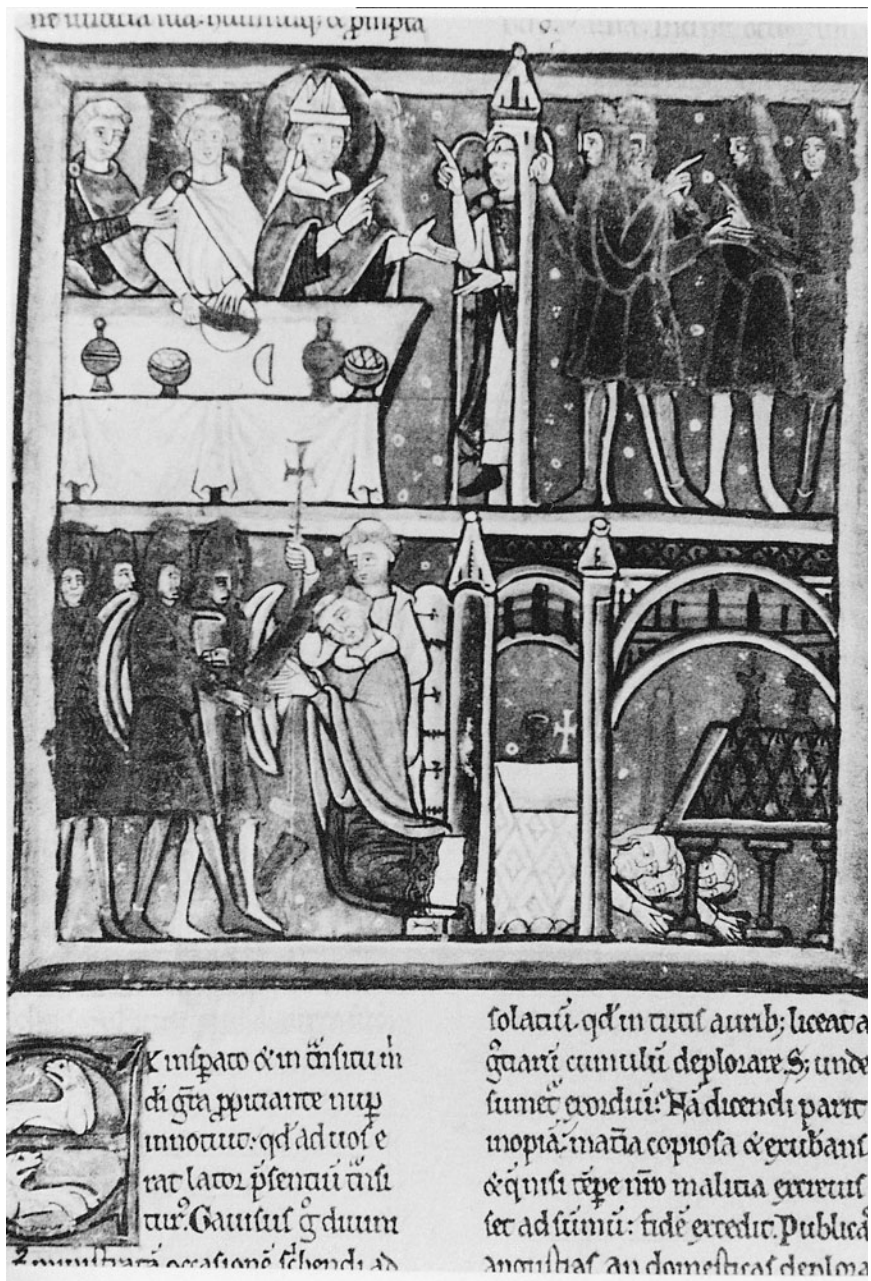 Ex insp̱ato & in t̃nsitu m̃
di gr̃a p̱piciante nup̱
innotuit: qd̓ ad uos e
rat lator p̃sentiu̅ t̃nsi
tur⁹. Gauisus g̊ duum
ministrata̅ occasione̅ sc̓bendi ad
solatiu̅. qd̓ in tutis aurib; liceat a
g̊tiaru̅ cumulu̅ deplorare. S; unde
sumet᷑ exordiu̅? Na̅ dicendi parit
inopia̅. mat̓ia copiosa & exub̓ans
& q̓ nisi te̅pe nr̅o malicia excreuis
set ad su̅mu̅: fide̅ excedit. Publica
angustias. an domesticas deplora